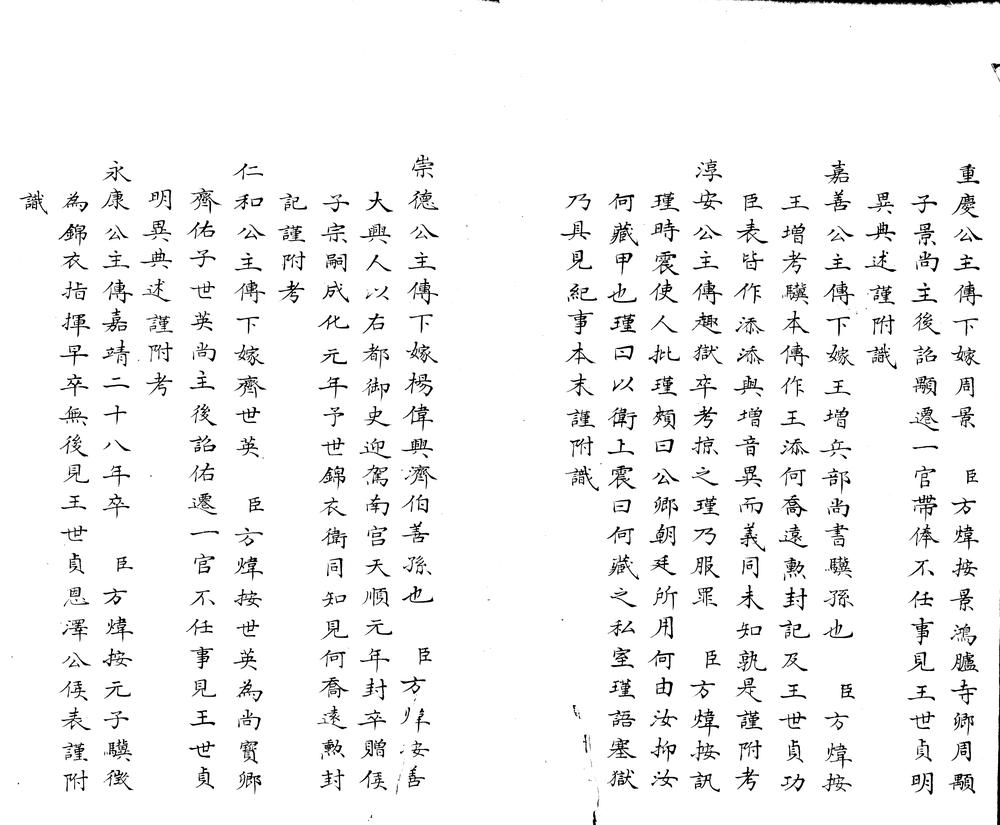 重慶公主傳下嫁周景　臣方煒按景鴻臚寺卿周顒
子景尚主後詔顒遷一官帶俸不任事見王世貞明
異典述謹附識
嘉善公主傳下嫁王增兵部尚書驥孫也　臣方煒按
王增考驥本傳作王添何喬遠勲封記及王世貞功
臣表皆作添添與增音異而義同未知孰是謹附考
淳安公主傳趣獄卒考掠之瑾乃服罪　臣方煒按訊
瑾時震使人批瑾頰曰公卿朝廷所用何由汝抑汝
何藏甲也瑾曰以衛上震曰何藏之私室瑾語塞獄
乃具見紀事本末謹附識
崇德公主傳下嫁楊偉興濟伯善孫也　臣方煒按善
大興人以右都御史迎駕南宫天順元年封卒贈侯
子宗嗣成化元年予世錦衣衛同知見何喬遠勲封
記謹附考
仁和公主傳下嫁齊世英　臣方煒按世英為尚寳卿
齊佑子世英尚主後詔佑遷一官不任事見王世貞
明異典述謹附考
永康公主傳嘉靖二十八年卒　臣方煒按元子驥徴
為錦衣指揮早卒無後見王世貞恩澤公侯表謹附
識